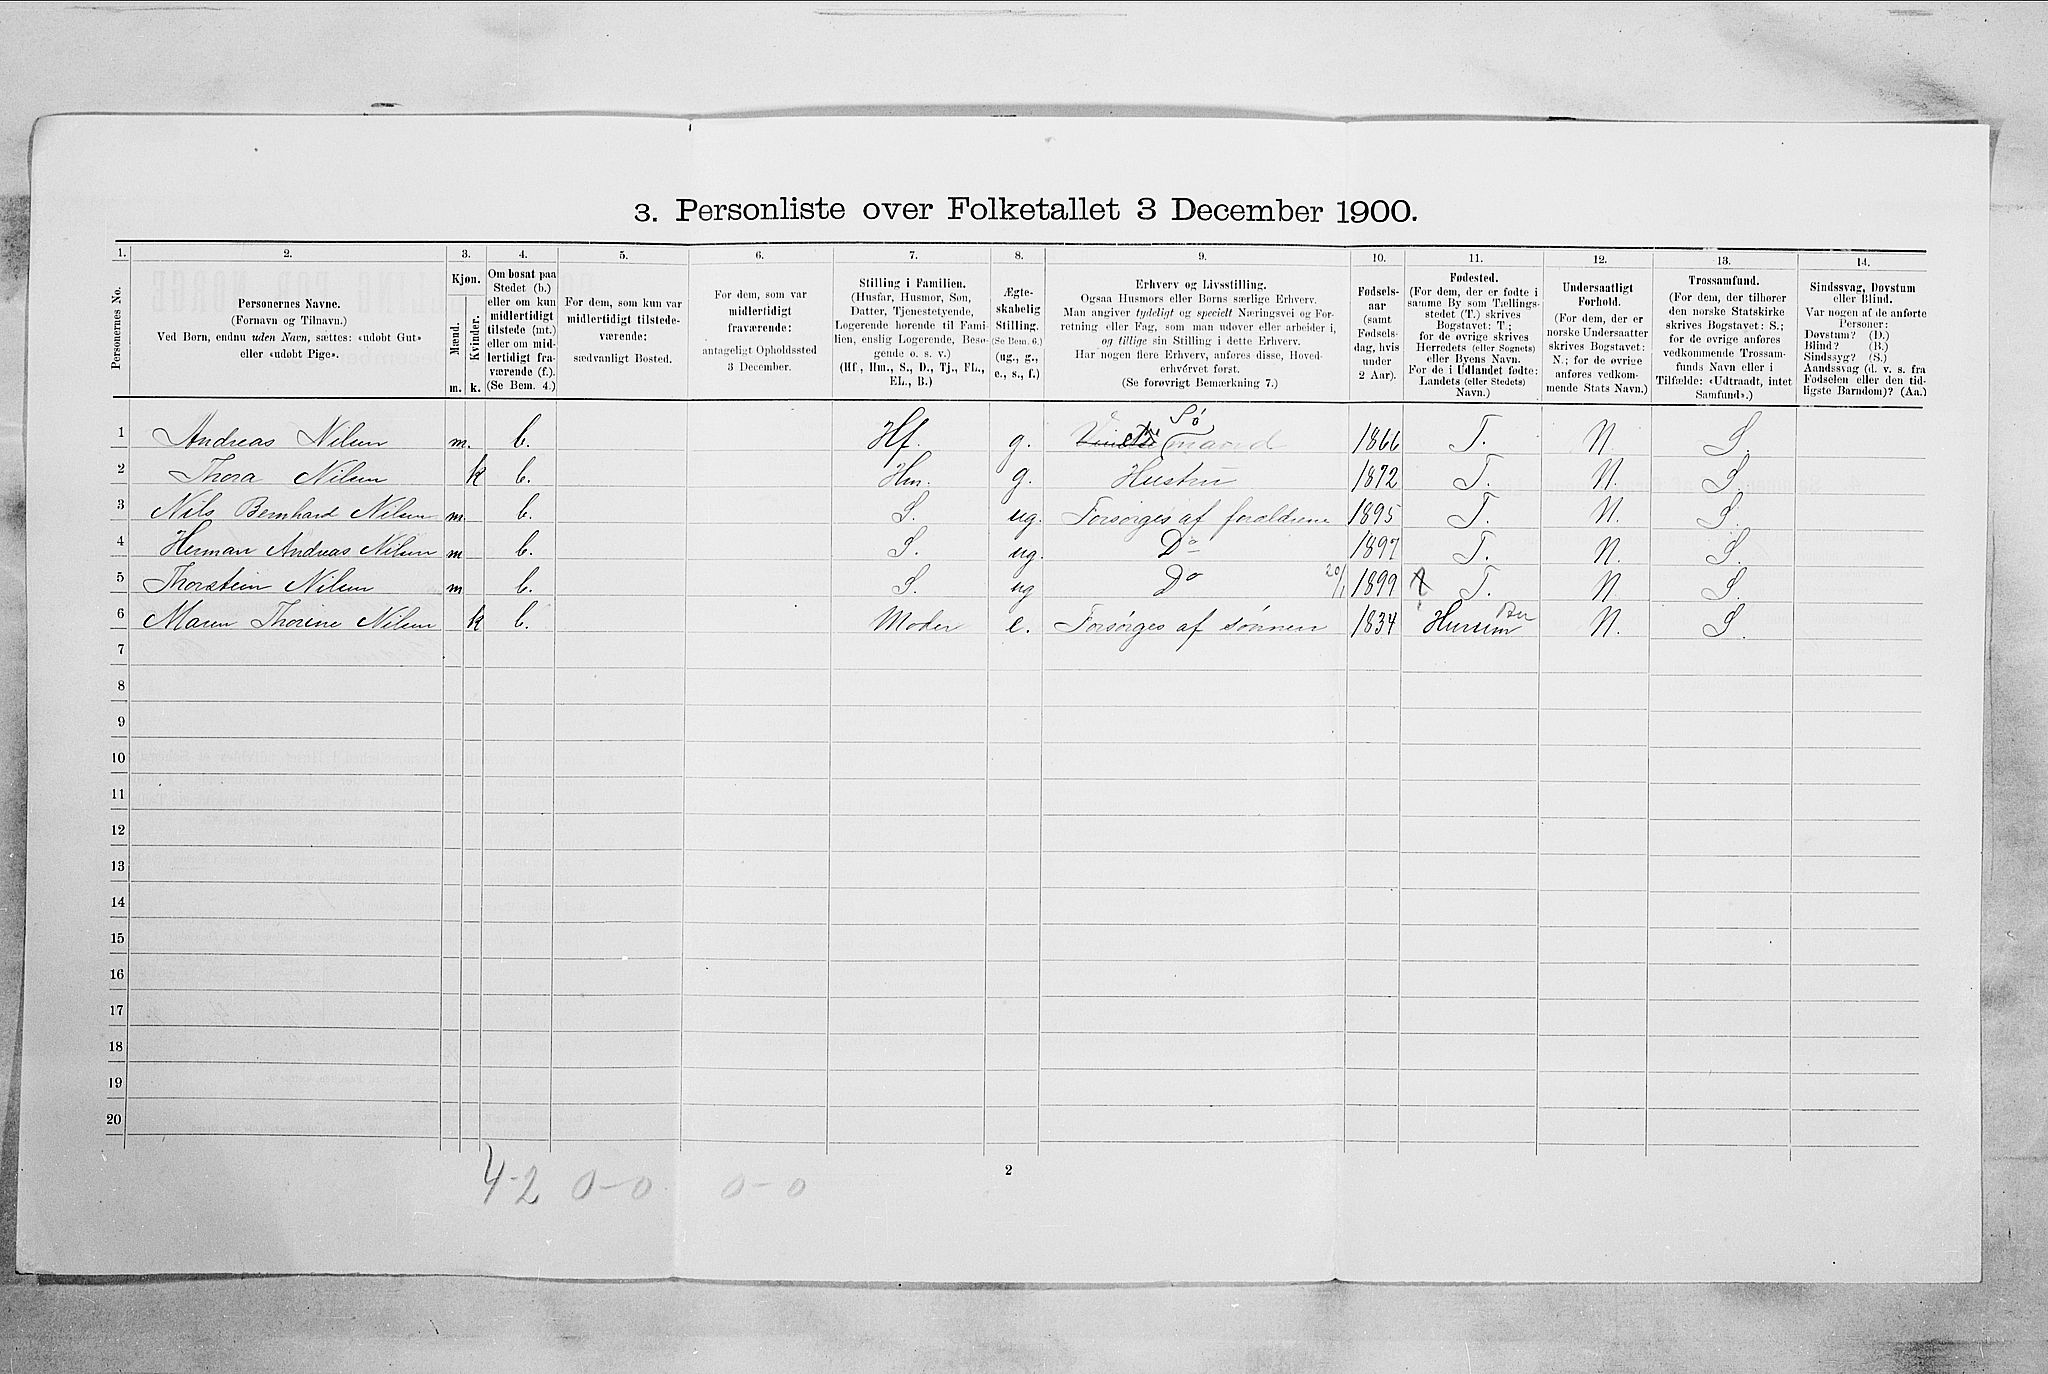 3. Personliste over Folketallet 3 December 1900.
1. 2. 3. 4. 5. 6. 7. 8. 9. 10. 11. 12. 13. 14.
Personernes No.
Personernes Navne.
(Fornavn og Tilnavn.)
Ved Børn, endnu uden Navn, sættes: «udøbt Gut»
eller «udøbt Pige».
Kjøn.
Mænd.
Kvinder.
m. k.
Om bosat paa
Stedet (b.)
eller om kun
midlertidigt
tilstede (mt.)
eller om mid-
lertidigt fra-
værende (f.).
(Se Bem. 4.)
For dem, som kun var
midlertidigt tilstede-
værende:
sædvanligt Bosted.
For dem, som var
midlertidigt
fraværende:
antageligt Opholdssted
3 December.
Stilling i Familien.
(Husfar, Husmor, Søn,
Datter, Tjenestetyende,
Logerende hørende til Fami-
lien, enslig Logerende, Besø-
gende o. s. v.)
(Hf., Hm., S., D., Tj., FL.,
EL., B.)
Ægte-
skabelig
Stilling.
(Se Bem. 6.)
(ug., g.,
e., s., f.)
Erhverv og Livsstilling.
Ogsaa Husmors eller Børns særlige Erhverv.
Man angiver tydeligt og specielt Næringsvei og For-
retning eller Fag, som man udøver eller arbeider i,
og tillige sin Stilling i dette Erhverv.
Har nogen flere Erhverv, anføres disse, Hoved-
erhvervet først.
(Se forøvrigt Bemærkning 7.)
Fødsels-
aar
(samt
Fødsels-
dag, hvis
under
2 Aar).
Fødested.
(For dem, der er fødte i
samme By som Tællings-
stedet (T.) skrives
Bogstavet: T;
for de øvrige skrives
Herredets (eller Sognets)
eller Byens Navn.
For de i Udlandet fødte:
Landets (eller Stedets)
Navn.)
Undersaatligt
Forhold.
(For dem, der er
norske Undersaatter
skrives Bogstavet:
N.; for de øvrige
anføres vedkom-
mende Stats Navn.)
Trossamfund.
(For dem, der tilhører
den norske Statskirke
skrives Bogstavet: S.;
for de øvrige anføres
vedkommende Trossam-
funds Navn eller i
Tilfælde: «Udtraadt, intet
Samfund».)
Sindssvag, Døvstum
eller Blind.
Var nogen af de anførte
Personer:
Døvstum? (D.)
Blind? (B.)
Sindssyg? (S.)
Aandssvag (d. v. s. fra
Fødselen eller den tid-
ligste Barndom)? (Aa.)
1 Andreas Nilsen m. b. Hf. g. Sømand 1866 T. N. S.
2 Thora Nilsen k b. Hm. g. Hustru 1872 T. N. S.
3 Nils Bernhard Nilsen m. b. S. ug. Forsørges af forældrene 1895 T. N. S.
4 Herman Andreas Nilsen m b. S. ug. Do 1897 T. N. S.
5 Thorstein Nilsen m b. S. ug Do 20/1 1899 T. N. S.
6 Maren Thorine Nilsen k b. Moder e. Forsørges af sønnen 1834 Hurum N. S.
7
8
9
10
11
12
13
14
15
16
17
18
19
20
4-2 0-0 0-0
2